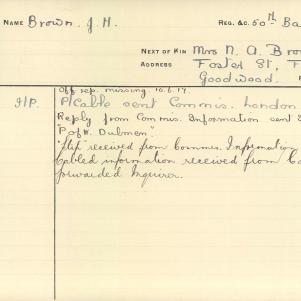 NAME Brown. J. H. REG. &C. 50th Ba
NEXT OF KIN Mrs N. A. Bro
ADDRESS Foster St, F
Goodwood.
Off rep. missing 10.6.17.
P/Cable sent Commis. London
Reply from Commis. Information sent
"P of W. Dulmen".
"Slip" received from Commis. Information
Cabled information received from Co
forwarded Inquirer.